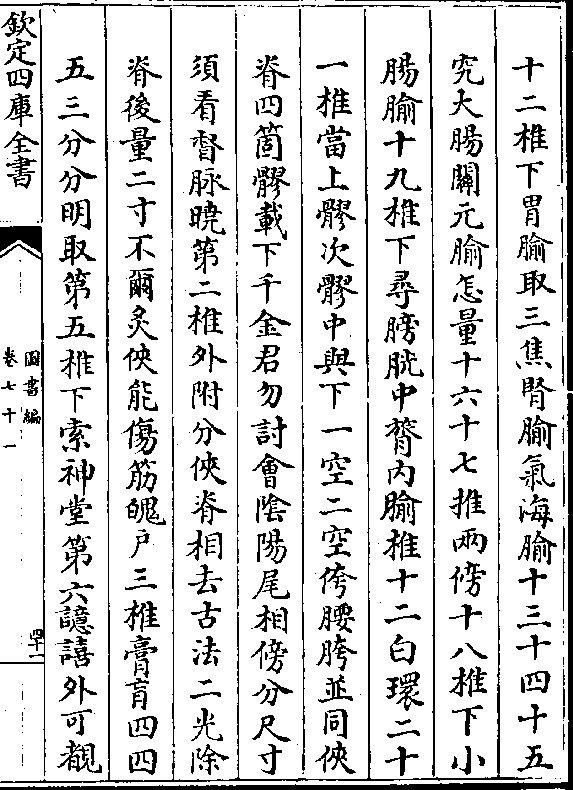 十二椎下胃腧取三焦腎腧氣海腧十三十四十五
究大腸關元腧怎量十六十七推兩傍十八椎下小
腸腧十九椎下尋膀胱中膂内腧推十二白環二十
一椎當上髎次髎中與下一空二空侉腰胯並同俠
脊四箇髎載下千金君勿討會陰陽尾相傍分尺寸
須看督脉曉第二椎外附分俠脊相去古法二光除
脊後量二寸不爾炙俠能傷筋魄户三椎膏肓四四
五三分分明取第五椎下索神堂第六譩譆外可覩
欽定四庫全書
圖書編
卷七十一